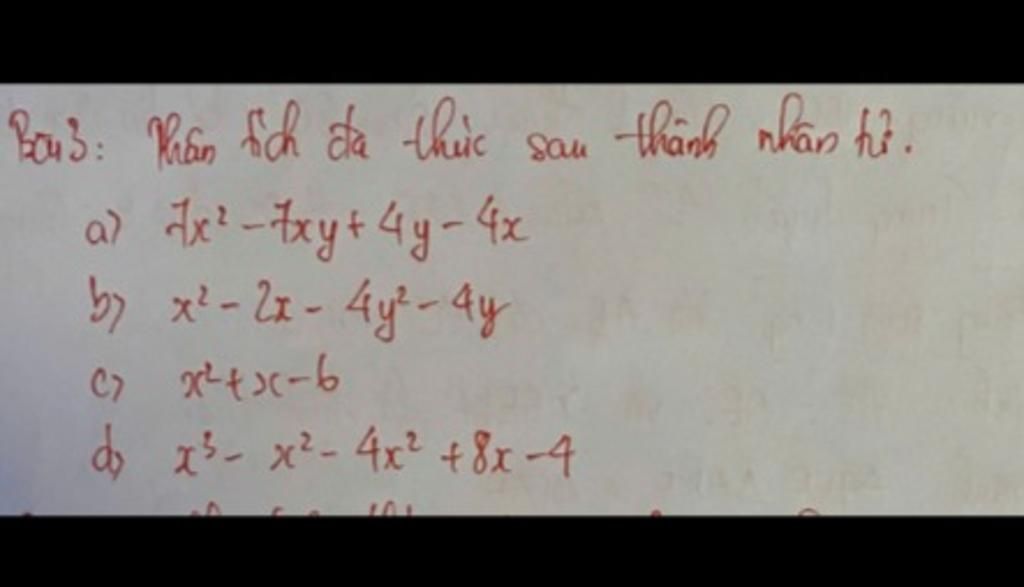 Bài 3: Phân tích đa thức sau thành nhân tử.
a) 7x² - 7xy + 4y - 4x
b) x² - 2x - 4y² - 4y
c) x² + x - 6
d) x³ - x² - 4x² + 8x - 4